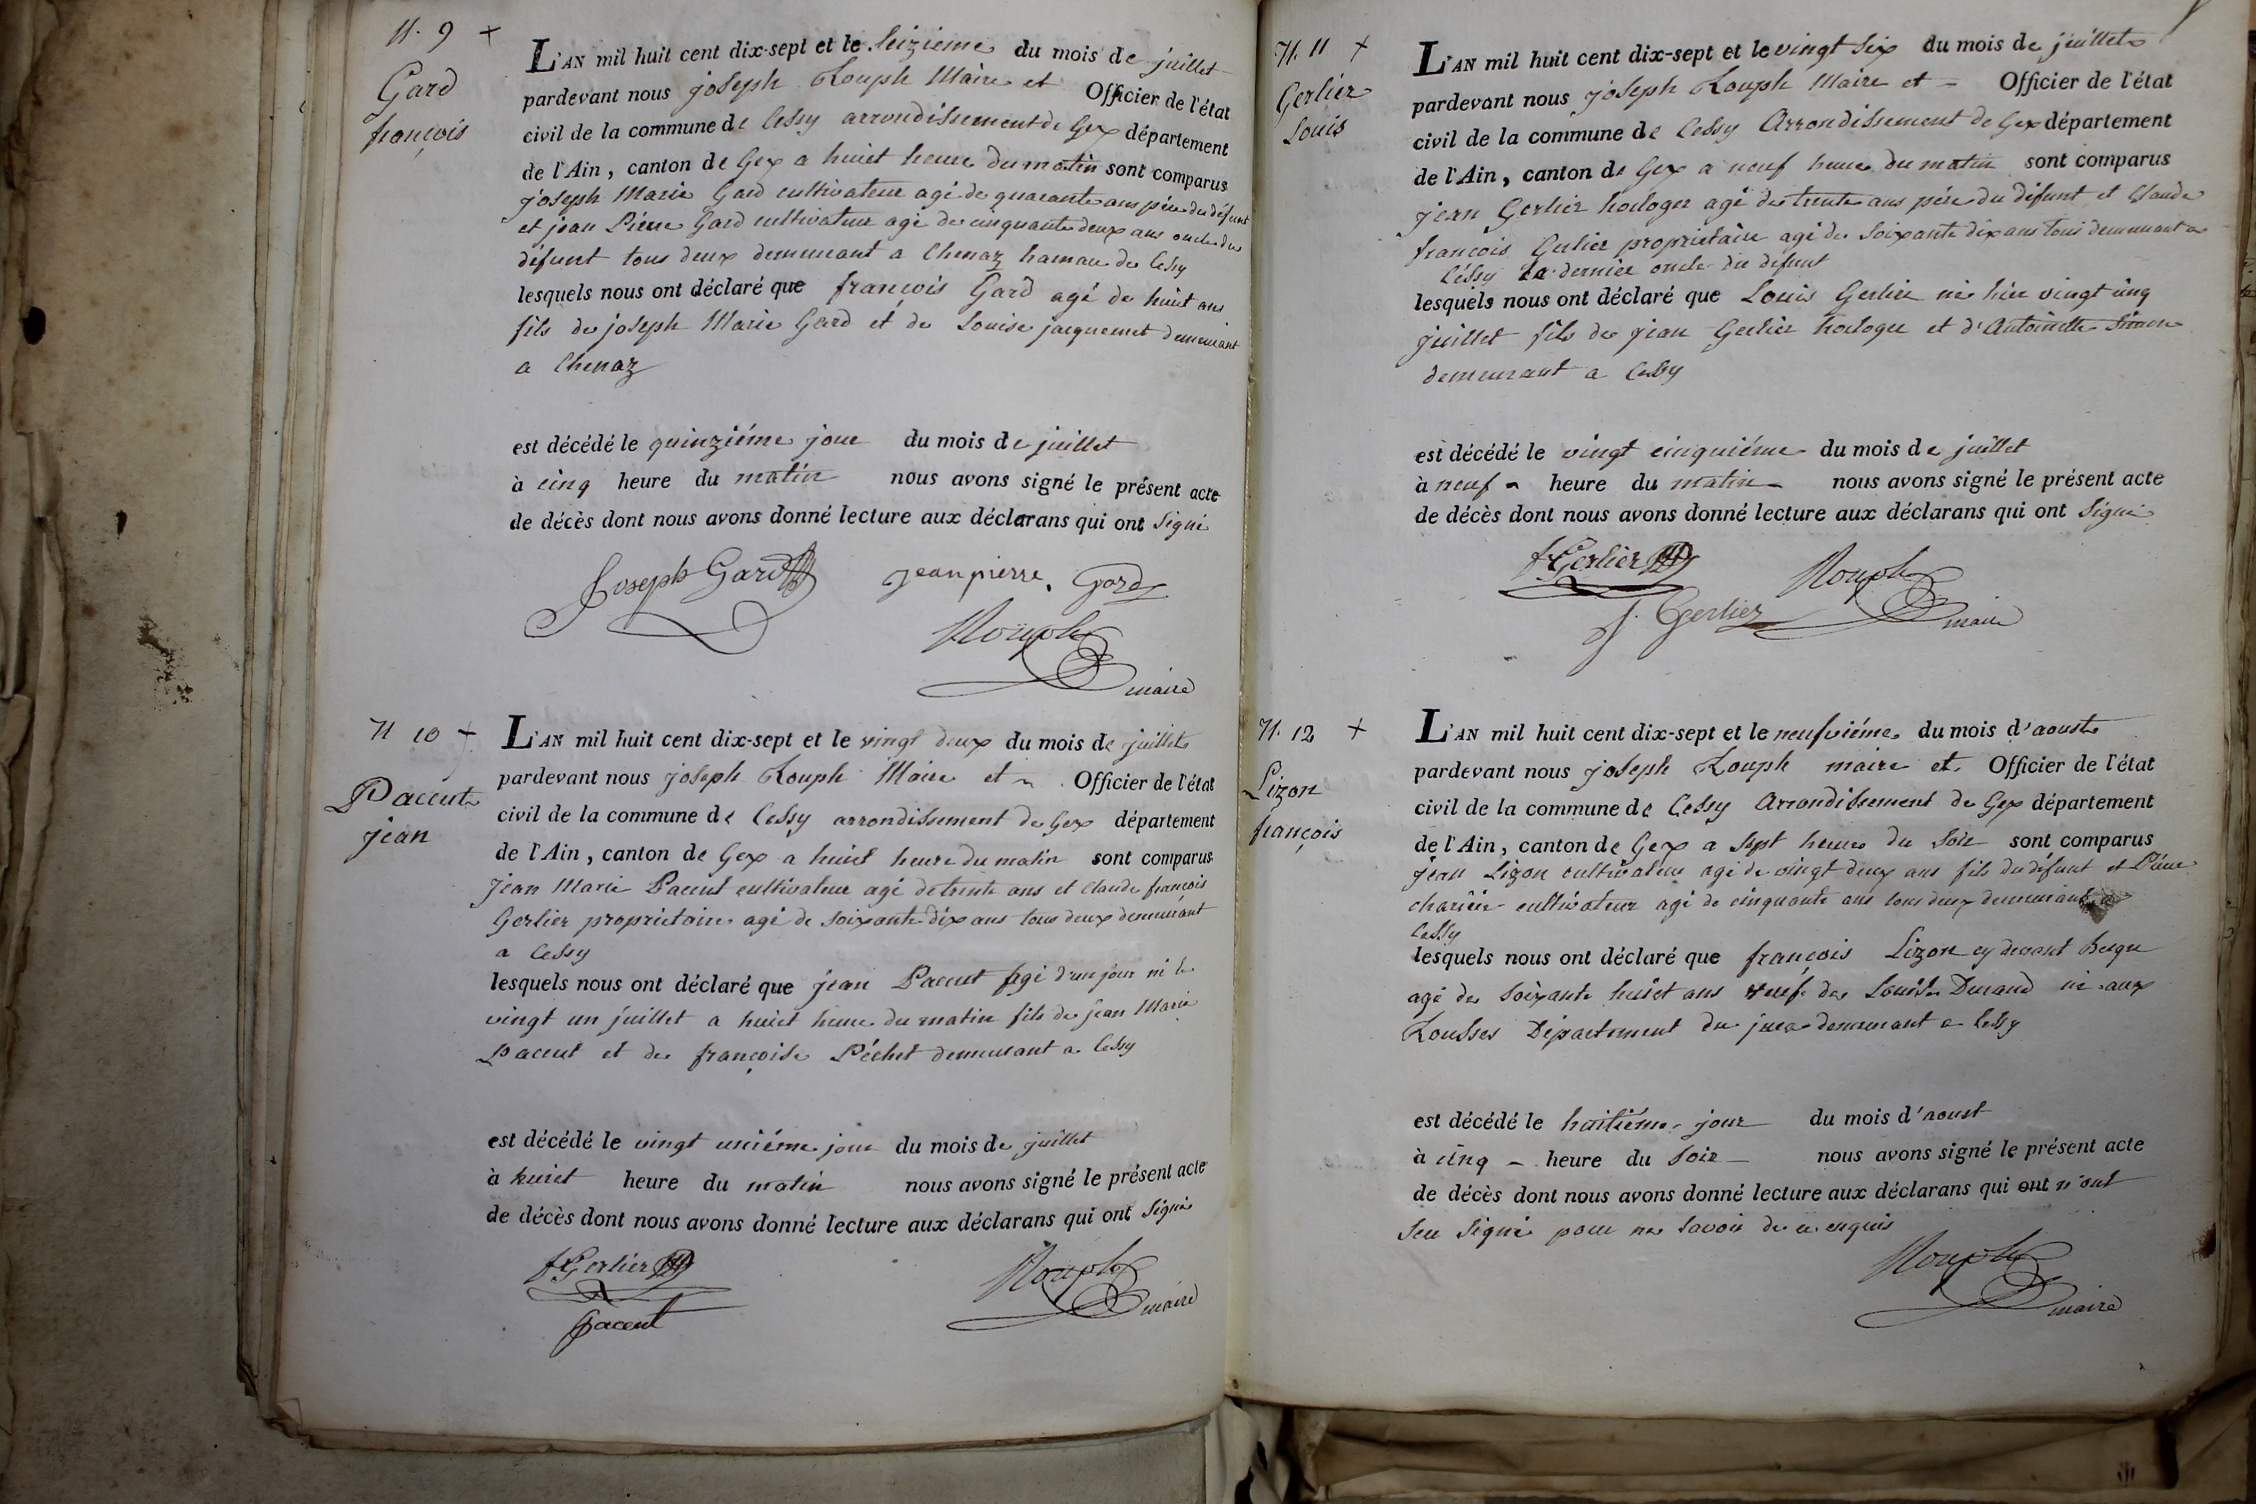 N. 9 +
Gard
françois
L'AN mil huit cent dix-sept et le seizieme du mois de juillet
pardevant nous joseph Rouph Maire et Officier de l'état
civil de la commune de Cessy arrondissement de Gex département
de l'Ain, canton de Gex a huict heure du matin sont comparus
joseph Marie Gard cultivateur agé de quarante ans pére du défunt
et jean Pierre Gard cultivateur agé de cinquante deux ans oncle du
défunt tous deux demeurant a Chenaz hamau de Cessy
lesquels nous ont déclaré que françois Gard agé de huit ans
fils de joseph Marie Gard et de Louise jacquemet demeurant
a Chenaz
est décédé le quinziéme jour du mois de juillet
à cinq heure du matin nous avons signé le présent acte
de décès dont nous avons donné lecture aux déclarans qui ont signé
Joseph Gard
jean pierre. Gard
Rouph
maire
N 10 +
Paccut
jean
L'AN mil huit cent dix-sept et le vingt deux du mois de juillet
pardevant nous joseph Rouph Maire et Officier de l'état
civil de la commune de Cessy arrondissement de Gex département
de l'Ain, canton de Gex a huict heure du matin sont comparus
jean Marie Paccut cultivateur agé de trente ans et Claude françois
Gerlier proprietaire agé de soixante dix ans tous deux demeurant
a Cessy
lesquels nous ont déclaré que jean Paccut agé d'un jour né le
vingt un juillet a huict heure du matin fils de jean Marie
Paccut et de françoise Péchet demeurant a Cessy
est décédé le vingt uniéme jour du mois de juillet
à huict heure du matin nous avons signé le présent acte
de décès dont nous avons donné lecture aux déclarans qui ont signé
f Gerlier
Rouph
maire
paccut
N. 11 +
Gerlier
Louis
L'AN mil huit cent dix-sept et le vingt six du mois de juillet
pardevant nous joseph Rouph Maire et Officier de l'état
civil de la commune de Cessy Arrondissement de Gex département
de l'Ain, canton de Gex a neuf heure du matin sont comparus
jean Gerlier horloger agé de trente ans pére du défunt et Claude
françois Gerlier proprietaire agé de soixante dix ans tous demeurant a
Céssy le dernier oncle du défunt
lesquels nous ont déclaré que Louis Gerlier né hier vingt cinq
juillet fils de jean Gerlier horloger et d'Antoinette Simon
demeurant a Cessy
est décédé le vingt cinquiéme du mois de juillet
à neuf heure du matin nous avons signé le présent acte
de décès dont nous avons donné lecture aux déclarans qui ont signé
f Gerlier
Rouph
j. Gerlier
maire
N. 12 +
Lizon
françois
L'AN mil huit cent dix-sept et le neufviéme du mois d'aoust
pardevant nous joseph Rouph maire et Officier de l'état
civil de la commune de Cessy Arrondissement de Gex département
de l'Ain, canton de Gex a sept heure du soir sont comparus
jean Lizon cultivateur agé de vingt deux ans fils du défunt et Pierre
cultivateur agé de cinquante ans tous deux demeurant a
Cessy
lesquels nous ont déclaré que françois Lizon cy devant
agé de soixante huict ans veuf de Louise Durand né aux
Rousses Département du jura demeurant a Cessy
est décédé le huitiéme jour du mois d'aoust
à cinq heure du soir nous avons signé le présent acte
de décès dont nous avons donné lecture aux déclarans qui ont n'ont
seu signé pour ne savoir de ce enquis
Rouph
maire